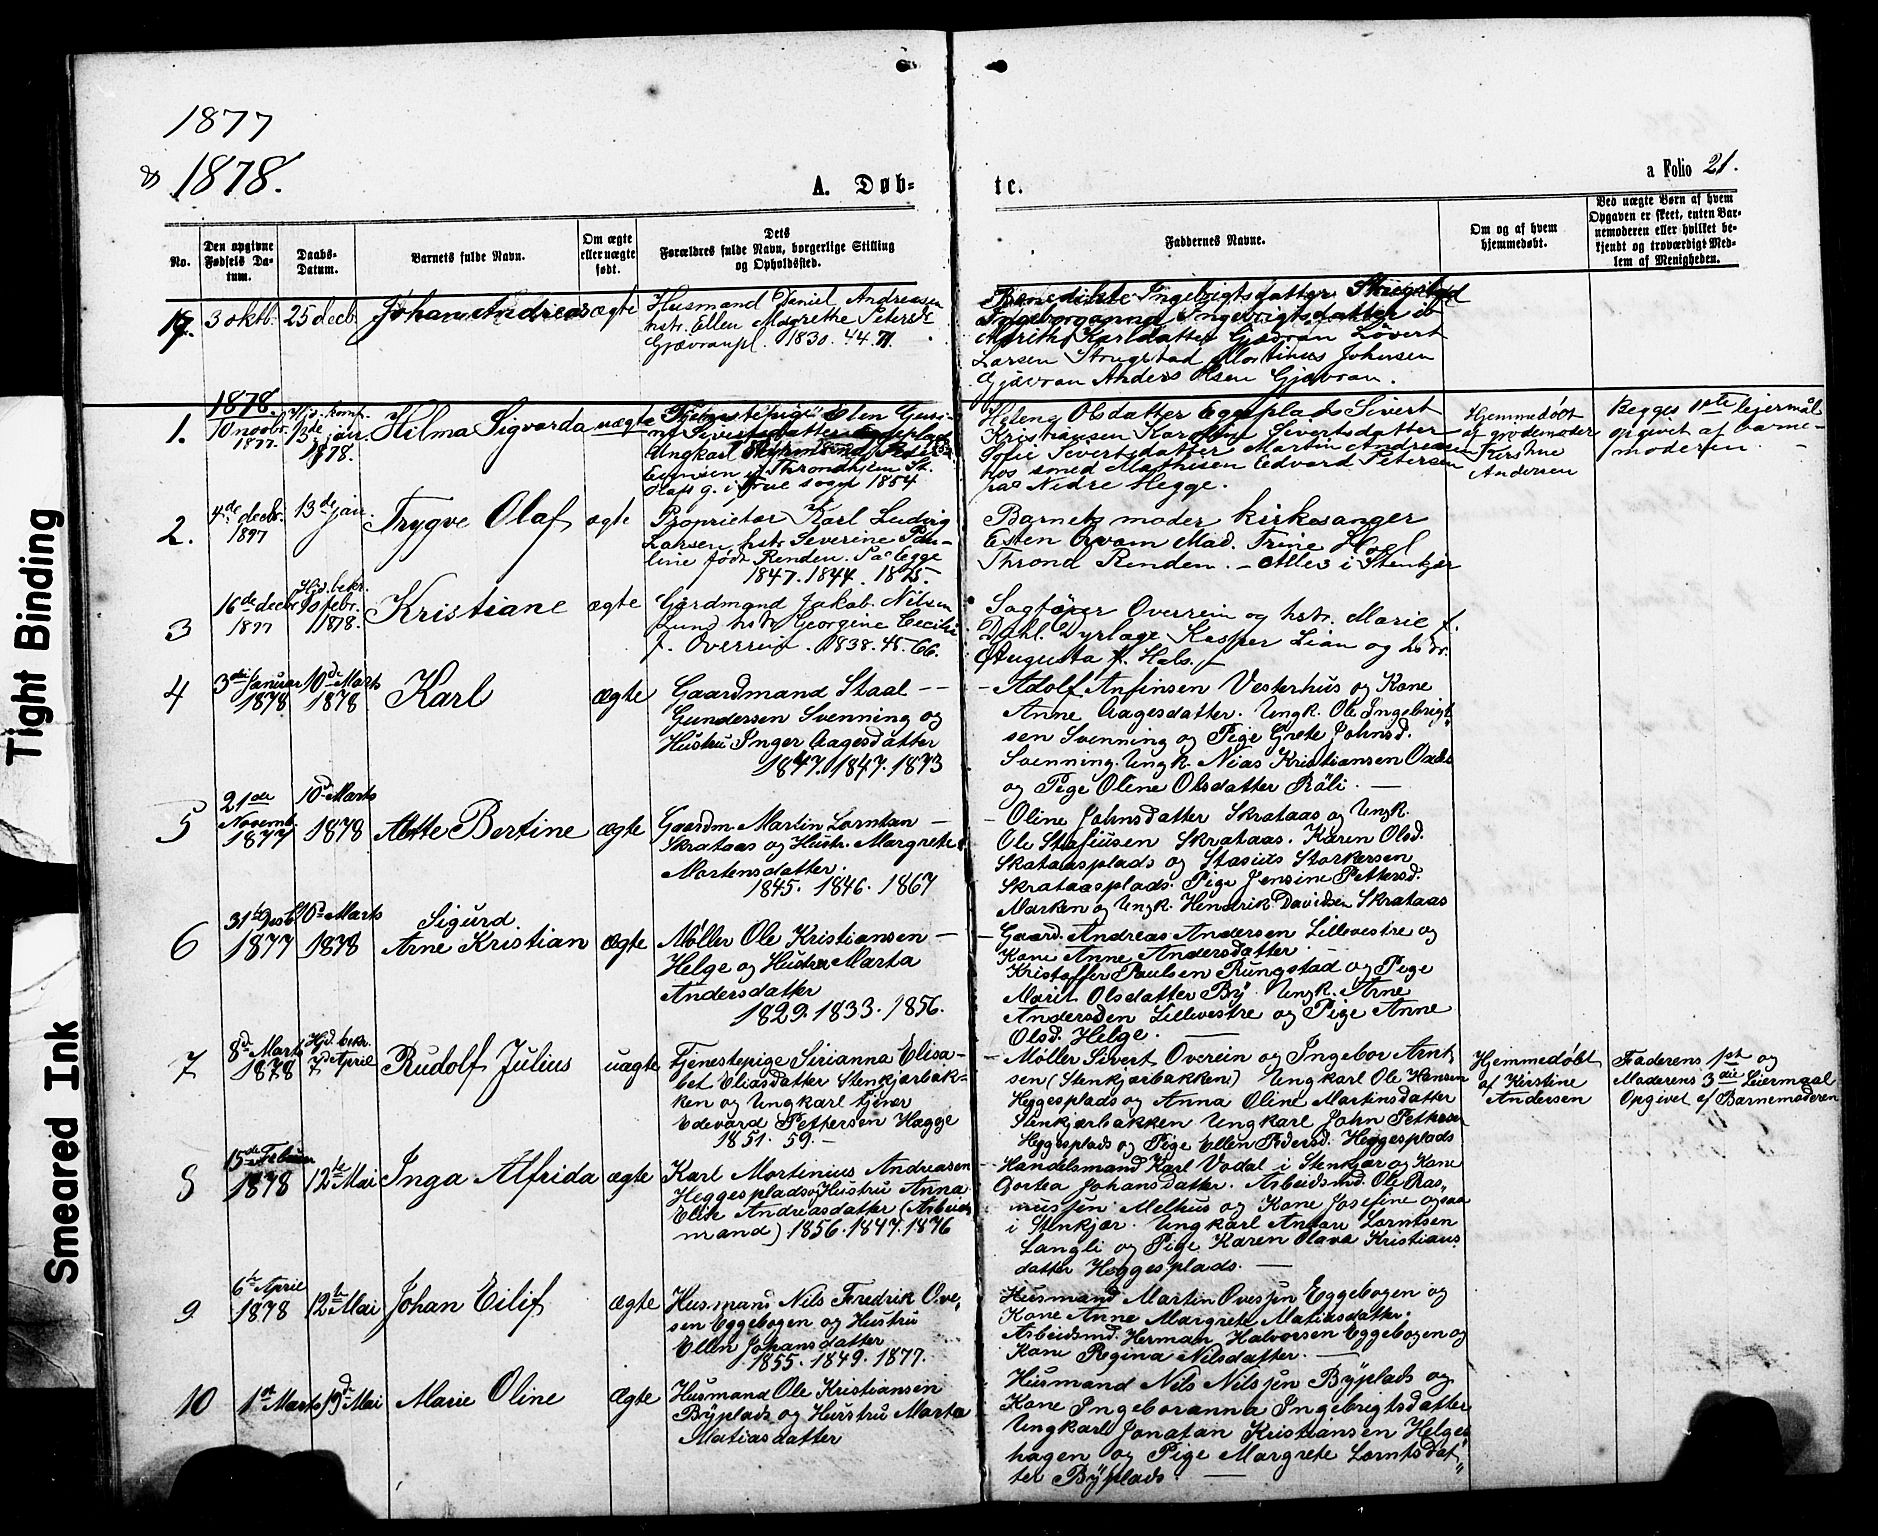 1877
& 1878.
A. Døb-
te.
a Folio 21.
No.
Den opgivne
Fødsels Da-
tum.
Daabs-
Datum.
Barnets fulde Navn.
Om ægte
eller uægte
født.
Dets
Forældres fulde Navn, borgerlige Stilling
og Opholdssted.
Faddernes Navne.
Om og af hvem
hjemmedøbt.
Ved uægte Børn af hvem
Opgaven er skeet, enten Bar-
nemoderen eller hvilket be-
kjendt og troværdigt Med-
lem af Menigheden.
3 oktb. 25 decb. Johan Andreas ægte
Husmand Daniel Andreasen
hstr. Ellen Margrethe Petersd.
Grævranpl. 1830. 44. 71.
Benedikte Ingebrigtsdatter
Ingeboranna Ingebrigtsdatter
Karlsdatter Gjævran
Larsen Strugstad Martinus Johnsen
Gjævran Anders Olsen Gjævran.
1878.
1.
10 novbr.
1877.
13 jan.
1878.
Hilma Sigvarda uægte
Tjenestepige Elen
Sivertsdatter
Ungkarl
Evensen i Throndhjem St.
Olafs g. i Frue sogn 1854
Olsdatter Eggeplads Sivert
Kristiansen Karoline Sivertsdatter
Sofie Sivertsdatter Martin Andreasen
hos smed Mathisen Edvard Petersen
paa Nedre Hegge.
Hjemmedöbt
af gjodemoder
Andersen
Begges 1ste lejermål
opgivet af barne-
moderen.
2.
4de decbr.
13de jan.
Trygve Olaf ægte
Proprietær Karl Ludvig
Larsen hstr. Severine Pau-
line född Renden. På Egge
1847. 1844. 1875.
Barnets moder kirkesanger
Esten Qvam Mad. Trine Hoel
Thrond Renden. - Alle i Stenkjær
3
16de decbr.
1877
Hjd. bekr.
febr.
1878.
Kristiane ægte
Gårdmand Jakob Nilsen
Lund hstr Georgine Cecilie
f. Overrein. 1838. 45. 66.
Sagföper Overrein og hstr. Marie f.
Dahl. Dyrlæge Kasper Lian og hstr.
Augusta f. Hals.
4
3die Januar
1878
10de Marts
1878
Karl ægte
Gaardmand Staal
Gundersen Svenning og
Hustru Inger Aagesdatter
1847. 1847. 1873
Adolf Anfinsen Vesterhus og Kone
Anne Aagesdatter. Ungk. Ole Ingebrigt-
sen Svenning og Pige Grete Johnsd.
Svenning. Ungk. Nias Kristiansen
og Pige Oline Olsdatter Röli.
5
21de
Novemb.
1877
10de Marts
1878
Bertine ægte
Gaardm. Martin Lorntsen
Skrataas og Hustr. Margrete
Mortensdatter.
1845. 1846. 1867
Oline Johnsdatter Skrataas og Ungk.
Ole Stafiusen Skrataas. Karen Olsd.
Skrataasplads og Stasius Storkersen
Skrataasplads. Pige Jensine Pettersd.
Marken og Ungk. Hendrik Davidsen Skrataas
6
31te Desb.
1877
10de Marts
1878
Sigurd
Arne Kristian ægte
Møller Ole Kristiansen
Helge og Hustru Marta
Andersdatter
1829. 1833. 1856.
Gaard. Andreas Andersen Lillevestre og
Kone Anne Andersdatter
Kristoffer Paulsen Rungstad og Pige
Marit Olsdatter Bÿ. Ungk. Arne
Andersen Lillevestre og Pige Anne
Olsd. Helge.
7
8de Marts
1878
Hjd. bekr.
7de April
Rudolf Julius uægte
Tjenestepige Sirianna Elisa-
bet Eliasdatter Stenkjærbak-
ken og Ungkarl tjener
Edevard Pettersen Hegge
1851. 59.
Møller Sivert Overein og Ingebor Arnt
sen (Stenkjærbakken) Ungkarl Ole Hansen
Heggesplads og Anna Oline Martinsdatter
Stenkjærbakken Ungkarl John Pettersen
Heggesplads og Pige Ellen Pedersd. Heggesplads
Hjemmedöbt
af Kirstine
Andersen
Faderens 1st og
Moderens 3die Leiermaal
Opgivet af Barnemoderen
8
15de Februar
1878
12te Mai
Inga Alfrida ægte
Karl Mortinius Andreasen
Heggesplads og Hustru Anna
Elise Andreasdatter (Arbeids
mand) 1856. 1847. 1876
Handelsmand Karl Vodal i Stenkjær og Kone
Dortea Johansdatter. Arbeidsmd. Ole Ras-
mussen Melhus og Kone Josefine ogsaa
i Stenkjær. Ungkarl Anton Lorntsen
Langli og Pige Karen Olava Kristians
datter Heggesplads.
9
6te April
1878
12te Mai
Johan Eilif ægte
Husmand Nils Fredrik Ove-
sen Eggebogen og Hustru
Ellen Johansdatter
1855. 1849. 1877.
Husmand Martin Ovesen Eggebogen og
Kone Anne Margrete Matiasdatter.
Arbeidsmd. Herman Halvorsen Eggebogen og
Kone Regina Nilsdatter.
10
1st Marts
19de Mai
Marie Oline ægte
Husmand Ole Kristiansen
Bÿplads og Hustru Marta
Matiasdatter
Husmand Nils Nilssen Bÿplads og
Kone Ingeboranna Ingebrigtsdatter
Ungkarl Jonatan Kristiansen Helges
hagen og Pige Margrete Lorntsdat-
ter Bÿplads.
Tight Binding
Smeared Ink